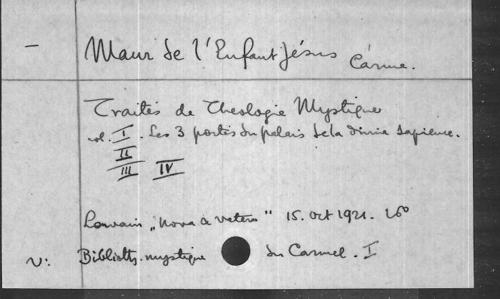 — Maur de l'Enfant Jésus Carme.
Traités de Theologie Mystique
vol. I. Les 3 portes du palais de la divine sapience.
II
III IV
Louvain "Nova & Vetera" 15. oct 1921. 16º
V: Biblioth. mystique du Carmel. I